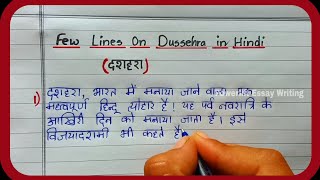 Few Lines On Dussehra in Hindi
(दशहरा)
1) दशहरा, भारत में मनाया जाने वाला एक
Essay Writing
महत्वपूर्ण हिन्दू त्योहार है। यह पर्व नवरात्रि के
आखिरी दिन को मनाया जाता है। इसे
विजयादशमी भी कहते है